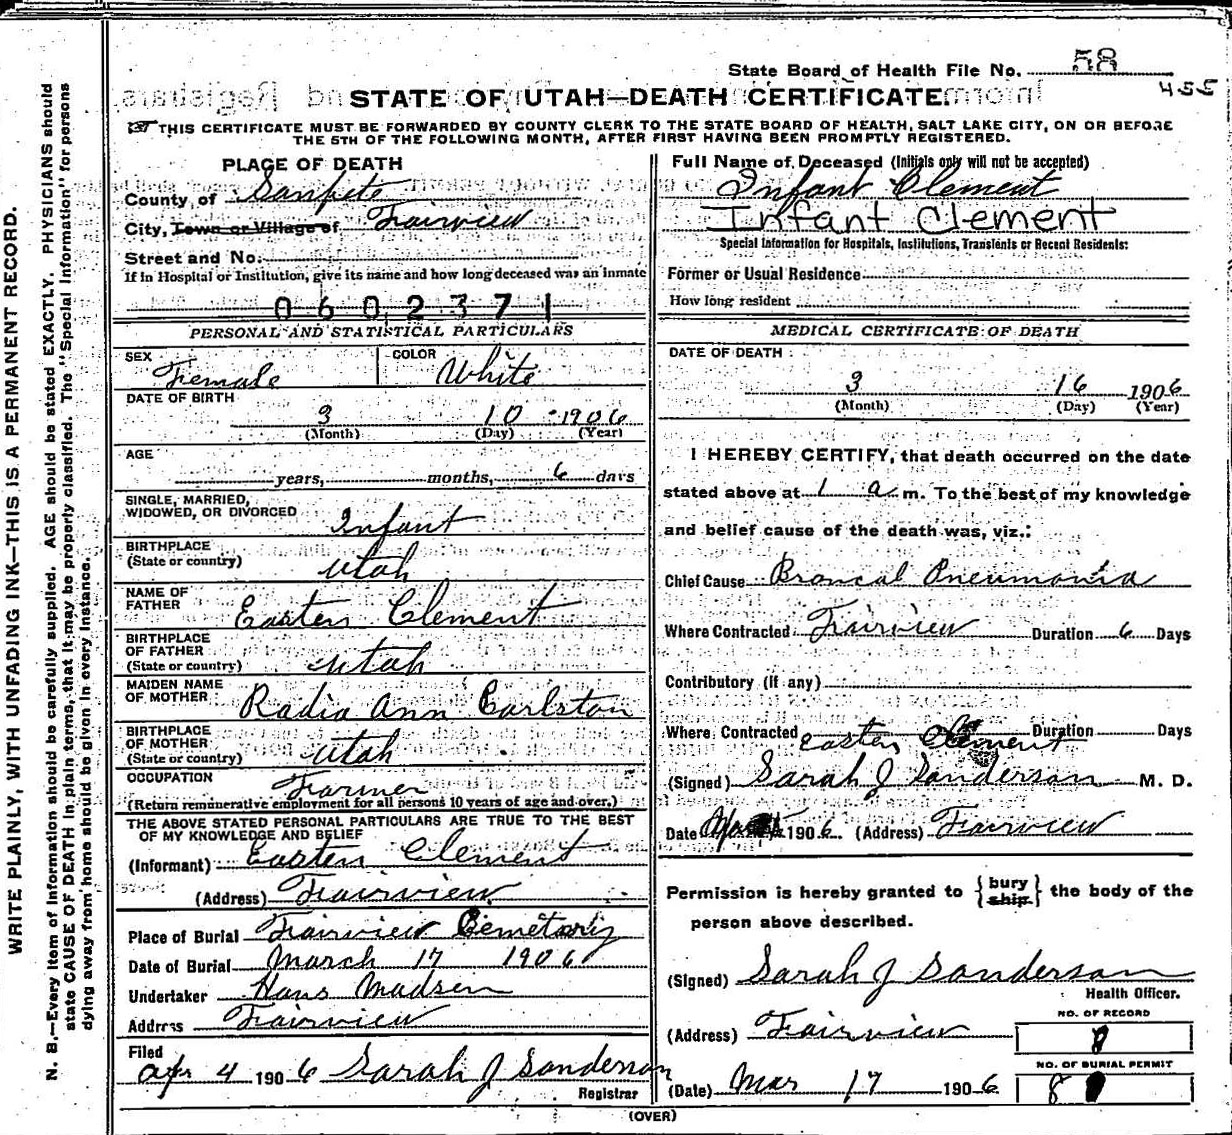 WRITE PLAINLY, WITH UNFADING INK—THIS IS A PERMANENT RECORD.
N. B.—Every item of information should be carefully supplied. AGE should be stated EXACTLY. PHYSICIANS should
state CAUSE OF DEATH in plain terms, that it may be properly classified. The "Special Information" for persons
dying away from home should be given in every instance.
State Board of Health File No. 58
455
STATE OF UTAH—DEATH CERTIFICATE
THIS CERTIFICATE MUST BE FORWARDED BY COUNTY CLERK TO THE STATE BOARD OF HEALTH, SALT LAKE CITY, ON OR BEFORE
THE 5TH OF THE FOLLOWING MONTH, AFTER FIRST HAVING BEEN PROMPTLY REGISTERED.
PLACE OF DEATH
County of Sanpete
City, Town or Village of Fairview
Street and No.
If in Hospital or Institution, give its name and how long deceased was an inmate
0602371
PERSONAL AND STATISTICAL PARTICULARS
SEX Female COLOR White
DATE OF BIRTH
3 10 1906
(Month) (Day) (Year)
AGE
years, months, 6 days
SINGLE, MARRIED,
WIDOWED, OR DIVORCED Infant
BIRTHPLACE
(State or country) Utah
NAME OF
FATHER Easten Clement
BIRTHPLACE
OF FATHER
(State or country) Utah
MAIDEN NAME
OF MOTHER Radia Ann Carlston
BIRTHPLACE
OF MOTHER
(State or country) Utah
OCCUPATION Farmer
(Return remunerative employment for all persons 10 years of age and over.)
THE ABOVE STATED PERSONAL PARTICULARS ARE TRUE TO THE BEST
OF MY KNOWLEDGE AND BELIEF
(Informant) Easten Clement
(Address) Fairview
Place of Burial Fairview Cemetary
Date of Burial March 17 1906
Undertaker Hans Madsen
Address Fairview
Filed
Apr 4 1906 Sarah J Sanderson
Registrar
Full Name of Deceased (Initials only will not be accepted)
Infant Clement
Infant Clement
Special Information for Hospitals, Institutions, Transients or Recent Residents:
Former or Usual Residence
How long resident
MEDICAL CERTIFICATE OF DEATH
DATE OF DEATH
3 16 1906
(Month) (Day) (Year)
I HEREBY CERTIFY, that death occurred on the date
stated above at 1 a m. To the best of my knowledge
and belief cause of the death was, viz.:
Chief Cause Broncal Pneumonia
Where Contracted Fairview Duration 6 Days
Contributory (if any)
Where Contracted Duration Days
Easten Clement
(Signed) Sarah J Sanderson M. D.
Date 1906 (Address) Fairview
Permission is hereby granted to {bury ship} the body of the
person above described.
(Signed) Sarah J Sanderson
Health Officer.
(Address) Fairview
NO. OF RECORD
8
NO. OF BURIAL PERMIT
8
(Date) Mar 17 1906
(OVER)